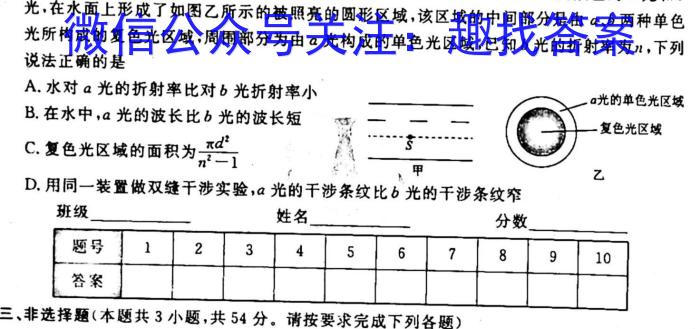 光,在水面上形成了如图乙所示的被照亮的圆形区域,该区域的中间部分为由a、b两种单色
光所构成的复色光区域,周围部分为由a光构成的单色光区域,已知 光的折射率为n,下列
微信公众号关注:趣找答案
说法正确的是
A. 水对a光的折射率比对b光折射率小
B. 在水中,a光的波长比b光的波长短
C. 复色光区域的面积为πd²/(n²-1)
D. 用同一装置做双缝干涉实验,a光的干涉条纹比b光的干涉条纹窄
S
甲
a光的单色光区域
复色光区域
乙
班级 姓名 分数
题号 1 2 3 4 5 6 7 8 9 10
答案
三、非选择题(本题共3小题,共54分。请按要求完成下列各题)